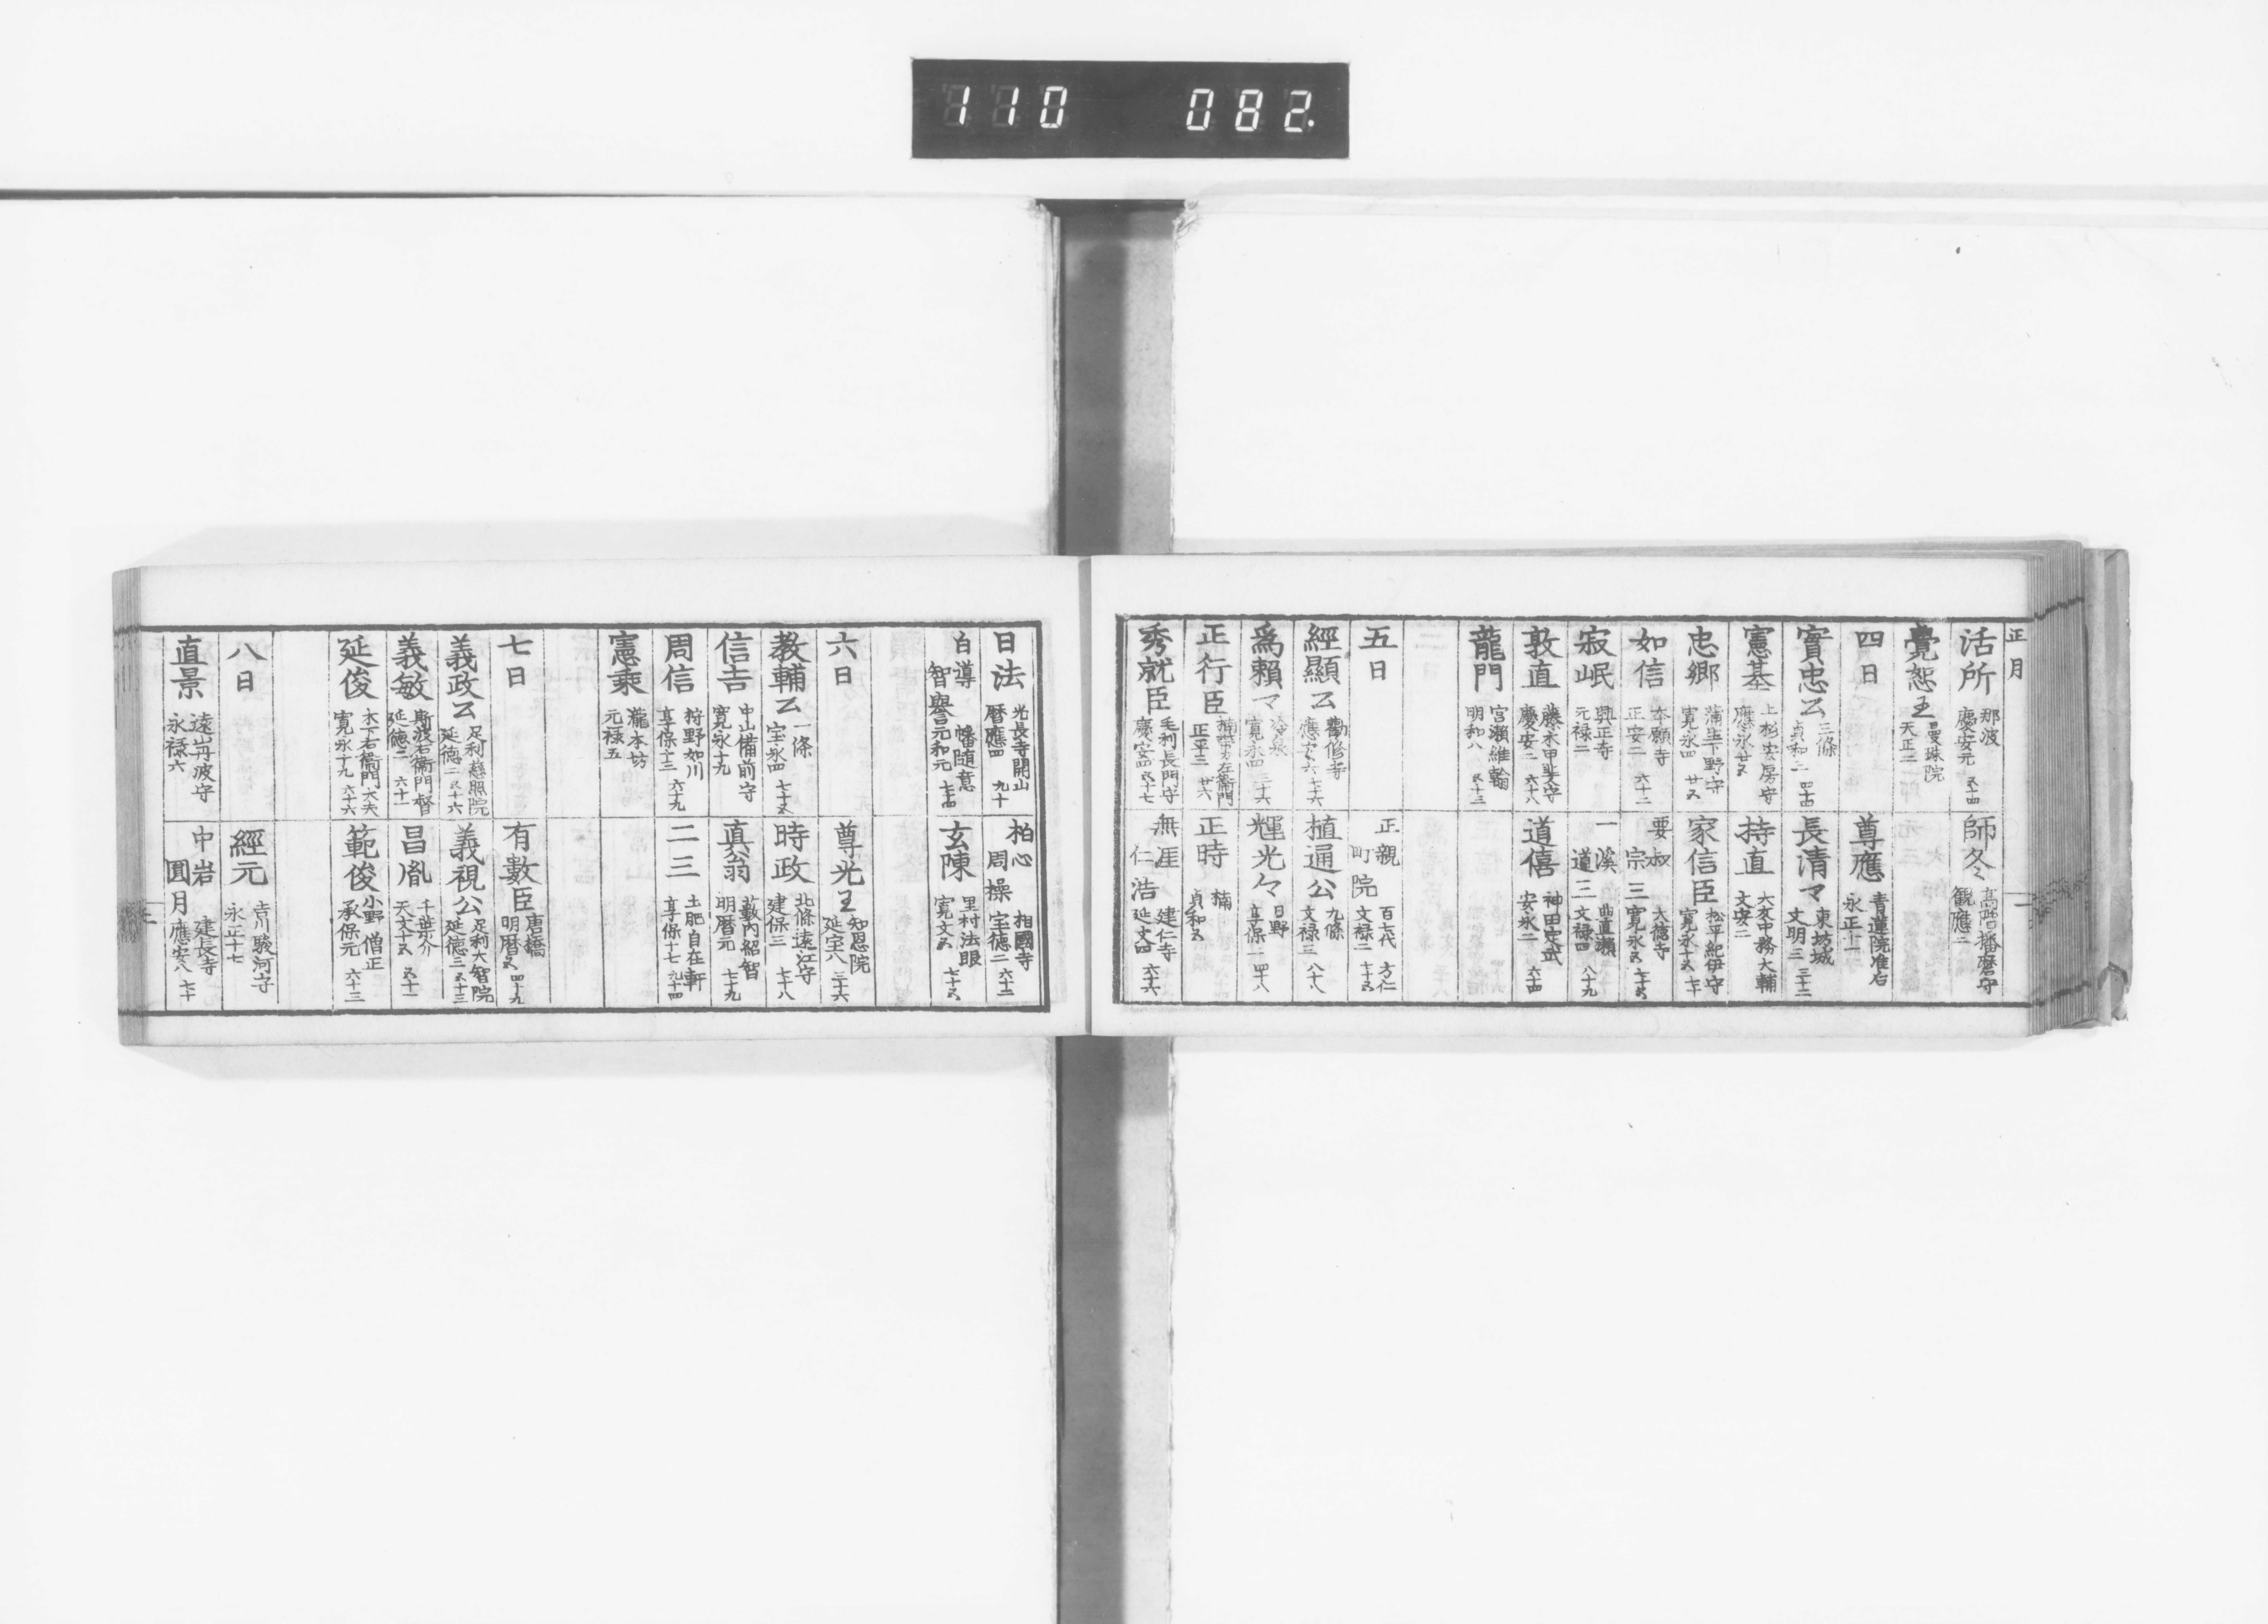 110 082.
正月
活所 那波 慶安元 五十四
師冬 高階播磨守 観應二
覺恕王 曼珠院 天正二
四日
尊應 青蓮院准后 永正十一
實忠公 三條 貞和三 四十四
長清マ 東坊城 文明三 三十二
憲基 上杉安房守 應永廿五
持直 大友中務大輔 文安二
忠郷 蒲生下野守 寛永四 廿五
家信臣 松平紀伊守 寛永十五 七十
如信 本願寺 正安二 六十二
要叔宗三 大德寺 寛永五 七十五
寂岷 興正寺 元禄二
一溪道三 曲直瀬 文禄四 八十九
敦直 藤木甲斐守 慶安二 六十八
道僖 神田定武 安永二 六十四
龍門 宮瀬維翰 明和八 五十三
五日
正親町院 百七代 方仁 文禄二 七十五
經顯公 勸修寺 應安六 七十六
植通公 九條 文禄三 八十八
爲頼マ 冷泉 寛永四 三十六
輝光々 日野 享保二 四十八
正行臣 楠帯刀左衛門 正平三 廿六
正時 楠 貞和五
秀就臣 毛利長門守 慶安四 五十七
無涯仁浩 建仁寺 延文四 六十六
日法 光長寺開山 暦應四 九十
柏心周操 相國寺 宝徳二 六十二
白導智譽 幡随意 元和元 七十四
玄陳 里村法眼 寛文五 七十五
六日
尊光王 知恩院 延宝八 三十六
教輔公 一條 宝永四 七十五
時政 北條遠江守 建保三 七十八
信吉 中山備前守 寛永十九
真翁 藪内紹智 明暦元 七十九
周信 狩野如川 享保十三 六十九
二三 土肥自在軒 享保十七 九十四
憲乘 瀧本坊 元禄五
七日
有數臣 唐橋 明暦五 四十九
義政公 足利慈照院 延徳二 五十六
義視公 足利大智院 延徳三 五十三
義敏 斯波右衛門督 延徳二 六十一
昌胤 千葉介 天文十五 五十一
延俊 木下右衛門大夫 寛永十九 六十六
範俊 小野 僧正 承保元 六十三
八日
經元 吉川駿河守 永正十七
直景 遠山丹波守 永禄六
中岩圓月 建長寺 應安八 七十